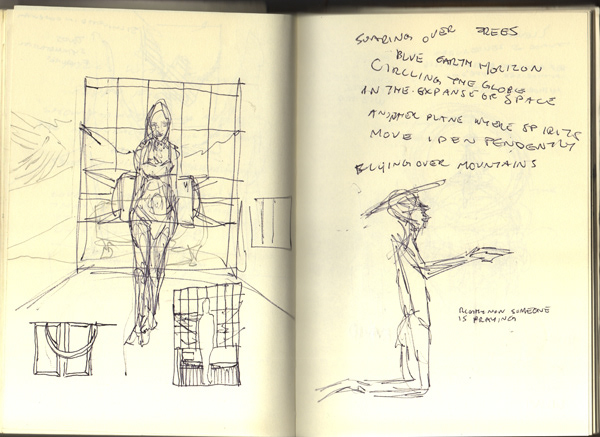 SOARING OVER TREES
BLUE EARTH HORIZON
CIRCLING THE GLOBE
IN THE EXPANSE OF SPACE
ANOTHER PLANE WHERE SPIRITS
MOVE IDENPENDENTLY
FLYING OVER MOUNTAINS
SOMEONE
IS PRAYING